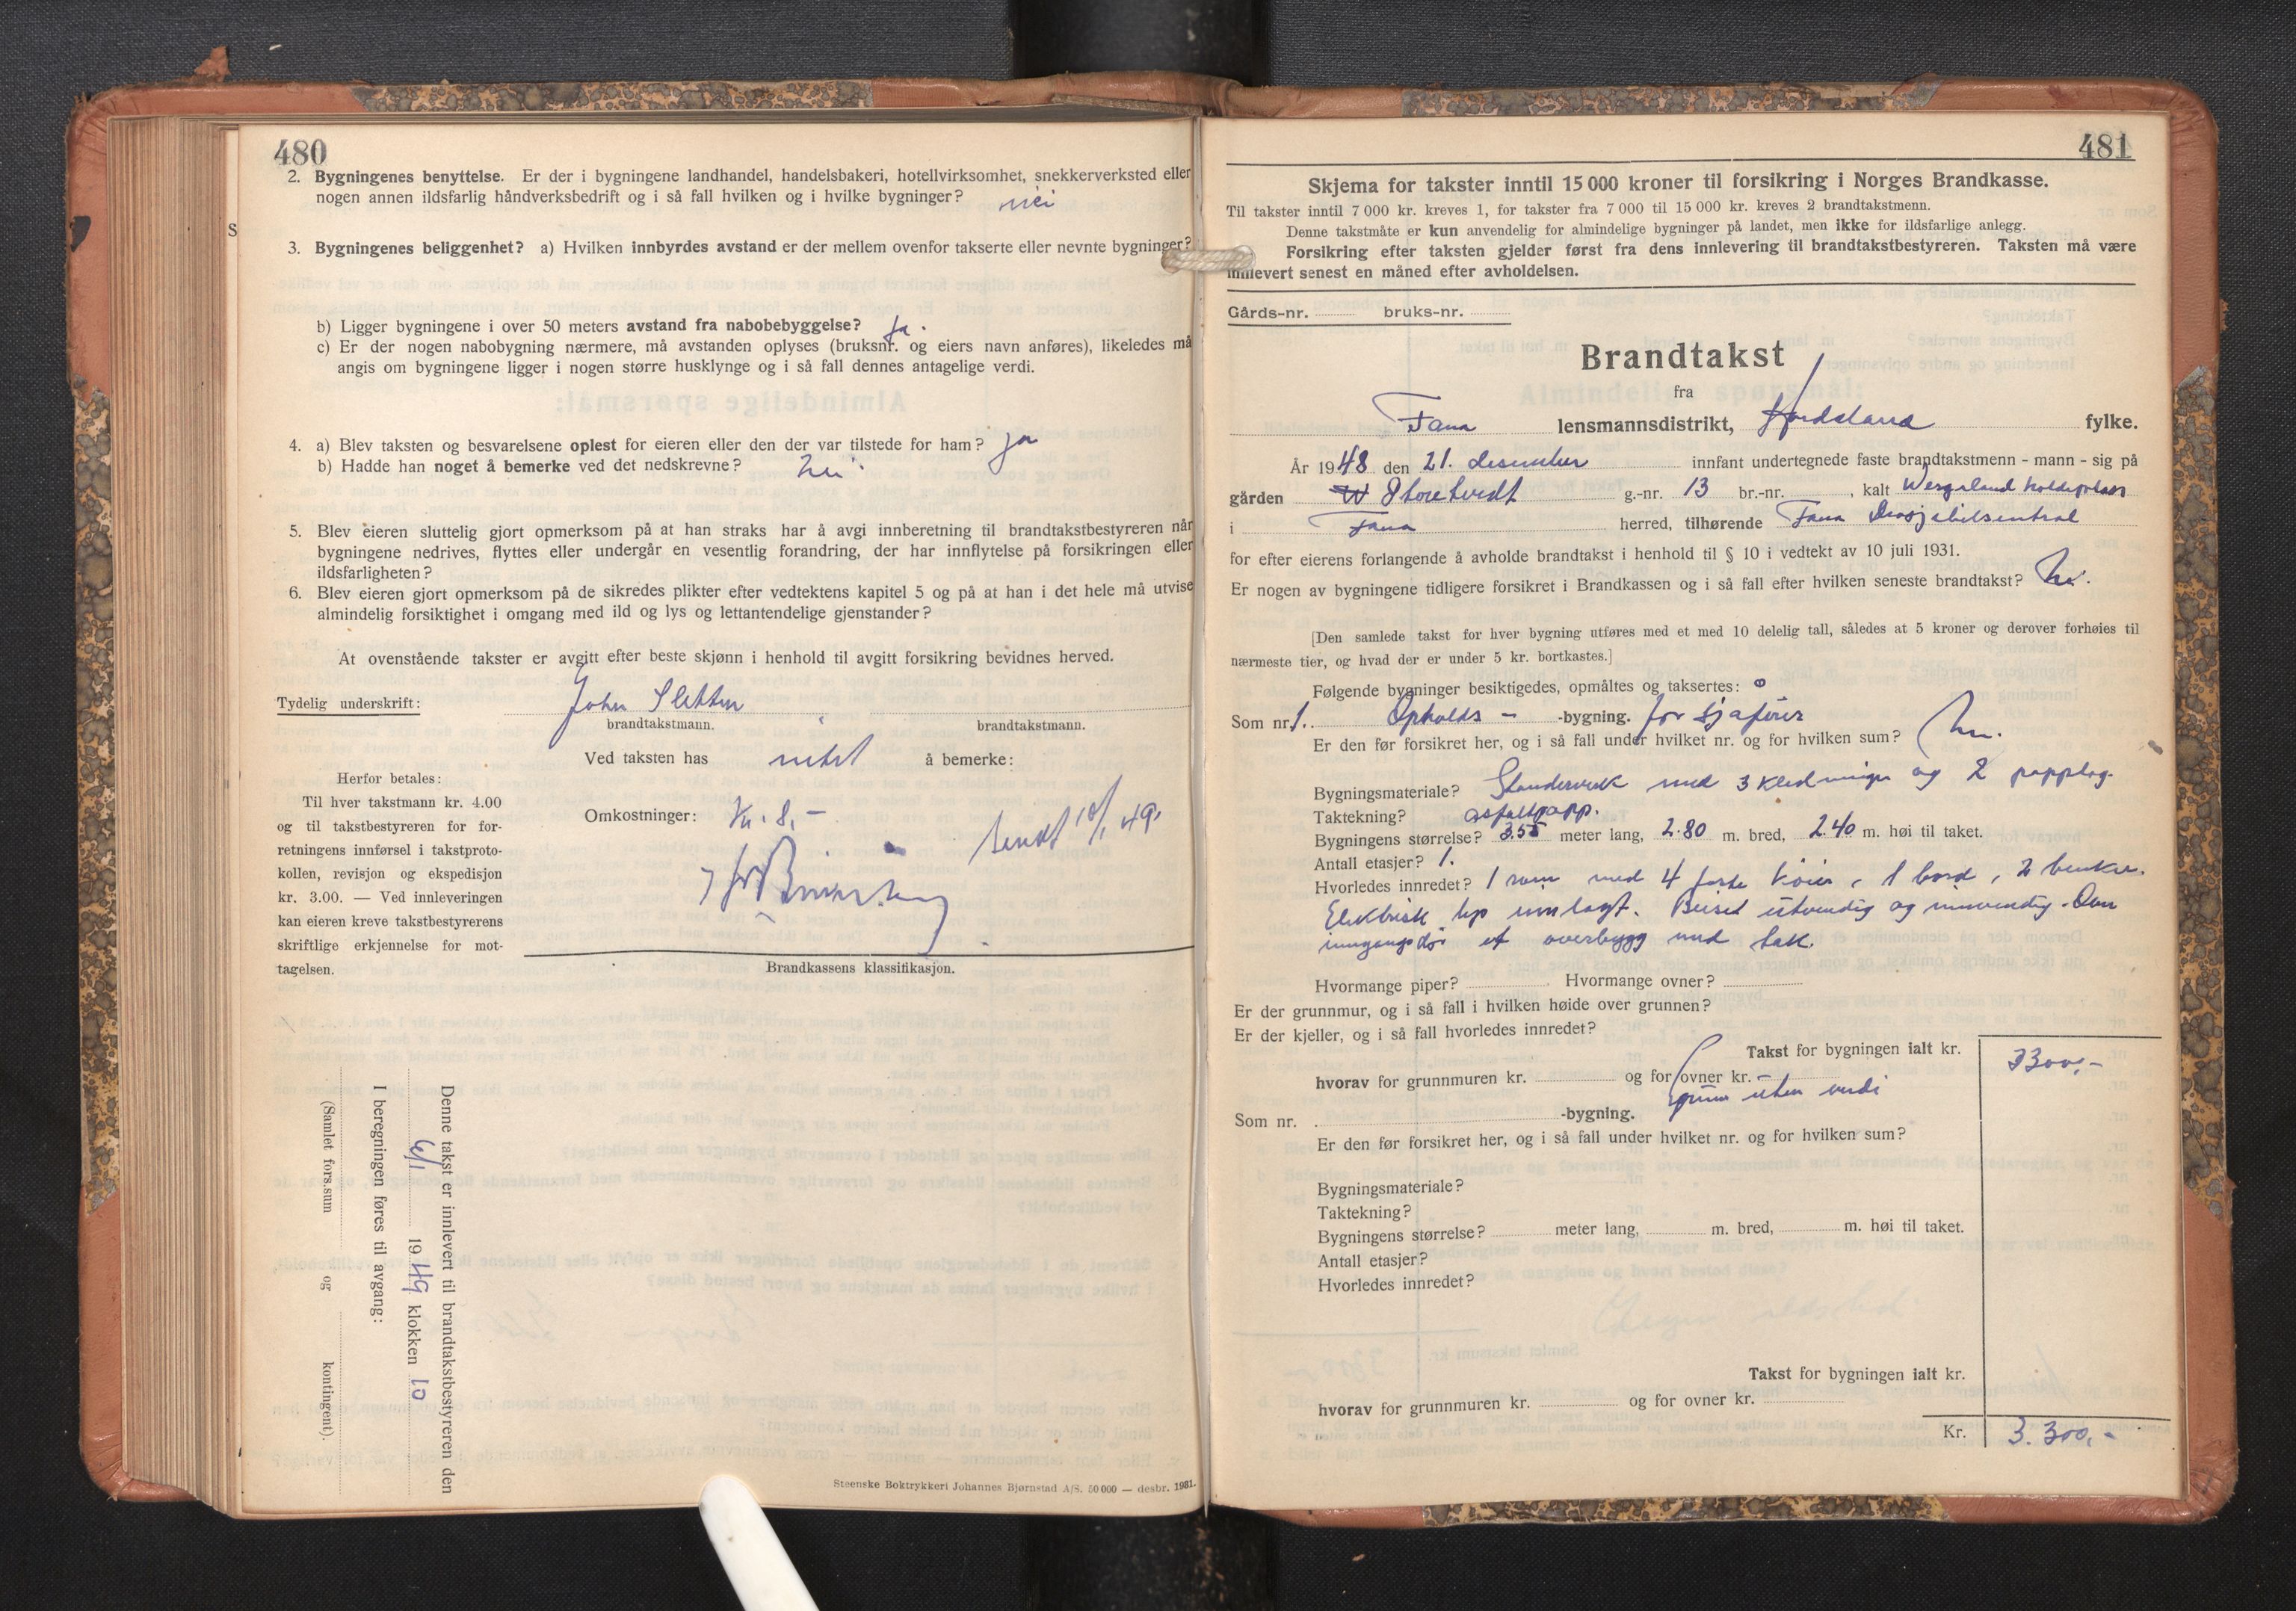 480
2. Bygningenes benyttelse. Er der i bygningene landhandel, handelsbakeri, hotellvirksomhet, snekkerverksted eller
nogen annen ildsfarlig håndverksbedrift og i så fall hvilken og i hvilke bygninger? nei
3. Bygningenes beliggenhet? a) Hvilken innbyrdes avstand er der mellem ovenfor takserte eller nevnte bygninger?
b) Ligger bygningene i over 50 meters avstand fra nabobebyggelse? Ja.
c) Er der nogen nabobygning nærmere, må avstanden oplyses (bruksnr. og eiers navn anføres), likeledes må
angis om bygningene ligger i nogen større husklynge og i så fall dennes antagelige verdi.
4. a) Blev taksten og besvarelsene oplest for eieren eller den der var tilstede for ham? Ja
b) Hadde han noget å bemerke ved det nedskrevne? Nei.
5. Blev eieren sluttelig gjort opmerksom på at han straks har å avgi innberetning til brandtakstbestyreren når
bygningene nedrives, flyttes eller undergår en vesentlig forandring, der har innflytelse på forsikringen eller
ildsfarligheten?
6. Blev eieren gjort opmerksom på de sikredes plikter efter vedtektens kapitel 5 og på at han i det hele må utvise
almindelig forsiktighet i omgang med ild og lys og lettantendelige gjenstander?
At ovenstående takster er avgitt efter beste skjønn i henhold til avgitt forsikring bevidnes herved.
Tydelig underskrift: John Sletten
brandtakstmann. brandtakstmann.
Ved taksten has intet å bemerke:
Herfor betales:
Til hver takstmann kr. 4.00
og til takstbestyreren for for-
retningens innførsel i takstproto-
kollen, revisjon og ekspedisjon
kr. 3.00. — Ved innleveringen
kan eieren kreve takstbestyrerens
skriftlige erkjennelse for mot-
tagelsen.
Omkostninger: Kr. 8,-
sendt 10/1 49.
Brandkassens klassifikasjon.
Denne takst er innlevert til brandtakstbestyreren den
6/1 1949 klokken 10
I beregningen føres til avgang:
(Samlet fors.sum og kontingent).
Steenske Boktrykkeri Johannes Bjørnstad A/S. 50 000 — desbr. 1931.
481
Skjema for takster inntil 15 000 kroner til forsikring i Norges Brandkasse.
Til takster inntil 7 000 kr. kreves 1, for takster fra 7 000 til 15 000 kr. kreves 2 brandtakstmenn.
Denne takstmåte er kun anvendelig for almindelige bygninger på landet, men ikke for ildsfarlige anlegg.
Forsikring efter taksten gjelder først fra dens innlevering til brandtakstbestyreren. Taksten må være
innlevert senest en måned efter avholdelsen.
Gårds-nr. bruks-nr.
Brandtakst
fra
Fana lensmannsdistrikt, Hordaland fylke.
År 1948 den 21. desember innfant undertegnede faste brandtakstmenn - mann - sig på
gården Storetvedt g.-nr. 13 br.-nr. , kalt Wergeland holdeplass
i Fana herred, tilhørende Fana Drosjebilsentral
for efter eierens forlangende å avholde brandtakst i henhold til § 10 i vedtekt av 10 juli 1931.
Er nogen av bygningene tidligere forsikret i Brandkassen og i så fall efter hvilken seneste brandtakst? Nei.
[Den samlede takst for hver bygning utføres med et med 10 delelig tall, således at 5 kroner og derover forhøies til
nærmeste tier, og hvad der er under 5 kr. bortkastes.]
Følgende bygninger besiktigedes, opmåltes og taksertes:
Som nr. 1. Opholds - -bygning. for sjåfører
Er den før forsikret her, og i så fall under hvilket nr. og for hvilken sum? Nei.
Bygningsmateriale? Stenderverk med 3 kledninger og 2 papplag.
Taktekning? asfaltpapp.
Bygningens størrelse? 3.55 meter lang, 2.80 m. bred, 2.40 m. høi til taket.
Antall etasjer? 1.
Hvorledes innredet? 1 rom med 4 faste køier, 1 bord, 2 benker.
Elektrisk lys innlagt. Beiset utvendig og innvendig. Over
inngangsdør et overbygg med tak.
Hvormange piper? Hvormange ovner?
Er der grunnmur, og i så fall i hvilken høide over grunnen?
Er der kjeller, og i så fall hvorledes innredet?
Takst for bygningen ialt kr. 3300,-
hvorav for grunnmuren kr. og for ovner kr.
grunn uten verdi
Som nr. -bygning.
Er den før forsikret her, og i så fall under hvilket nr. og for hvilken sum?
Bygningsmateriale?
Taktekning?
Bygningens størrelse? meter lang, m. bred, m. høi til taket.
Antall etasjer?
Hvorledes innredet?
Takst for bygningen ialt kr.
hvorav for grunnmuren kr. og for ovner kr.
Kr. 3.300,-